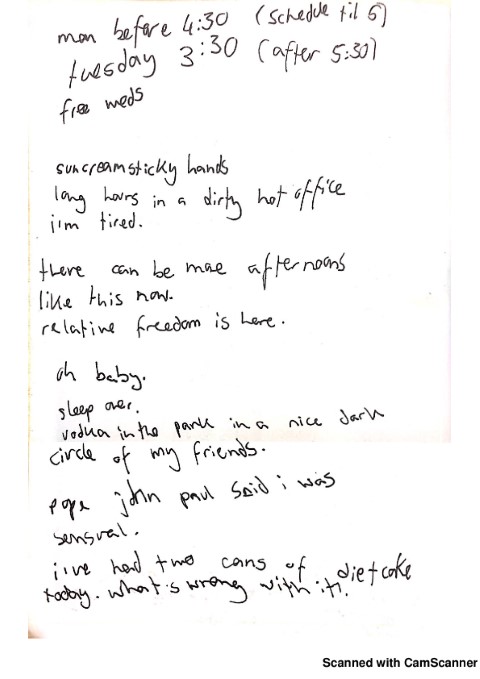 mon before 4:30 (schedule til 5)
tuesday 3:30 (after 5:30)
free meds
suncreamsticky hands
long hours in a dirty hot office
i'm tired.
there can be more afternoons
like this now.
relative freedom is here.
oh baby.
sleep over.
vodka in the park in a nice dark
circle of my friends.
pope john paul said i was
sensual.
i've had two cans of diet coke
today. what's wrong with it?
Scanned with CamScanner